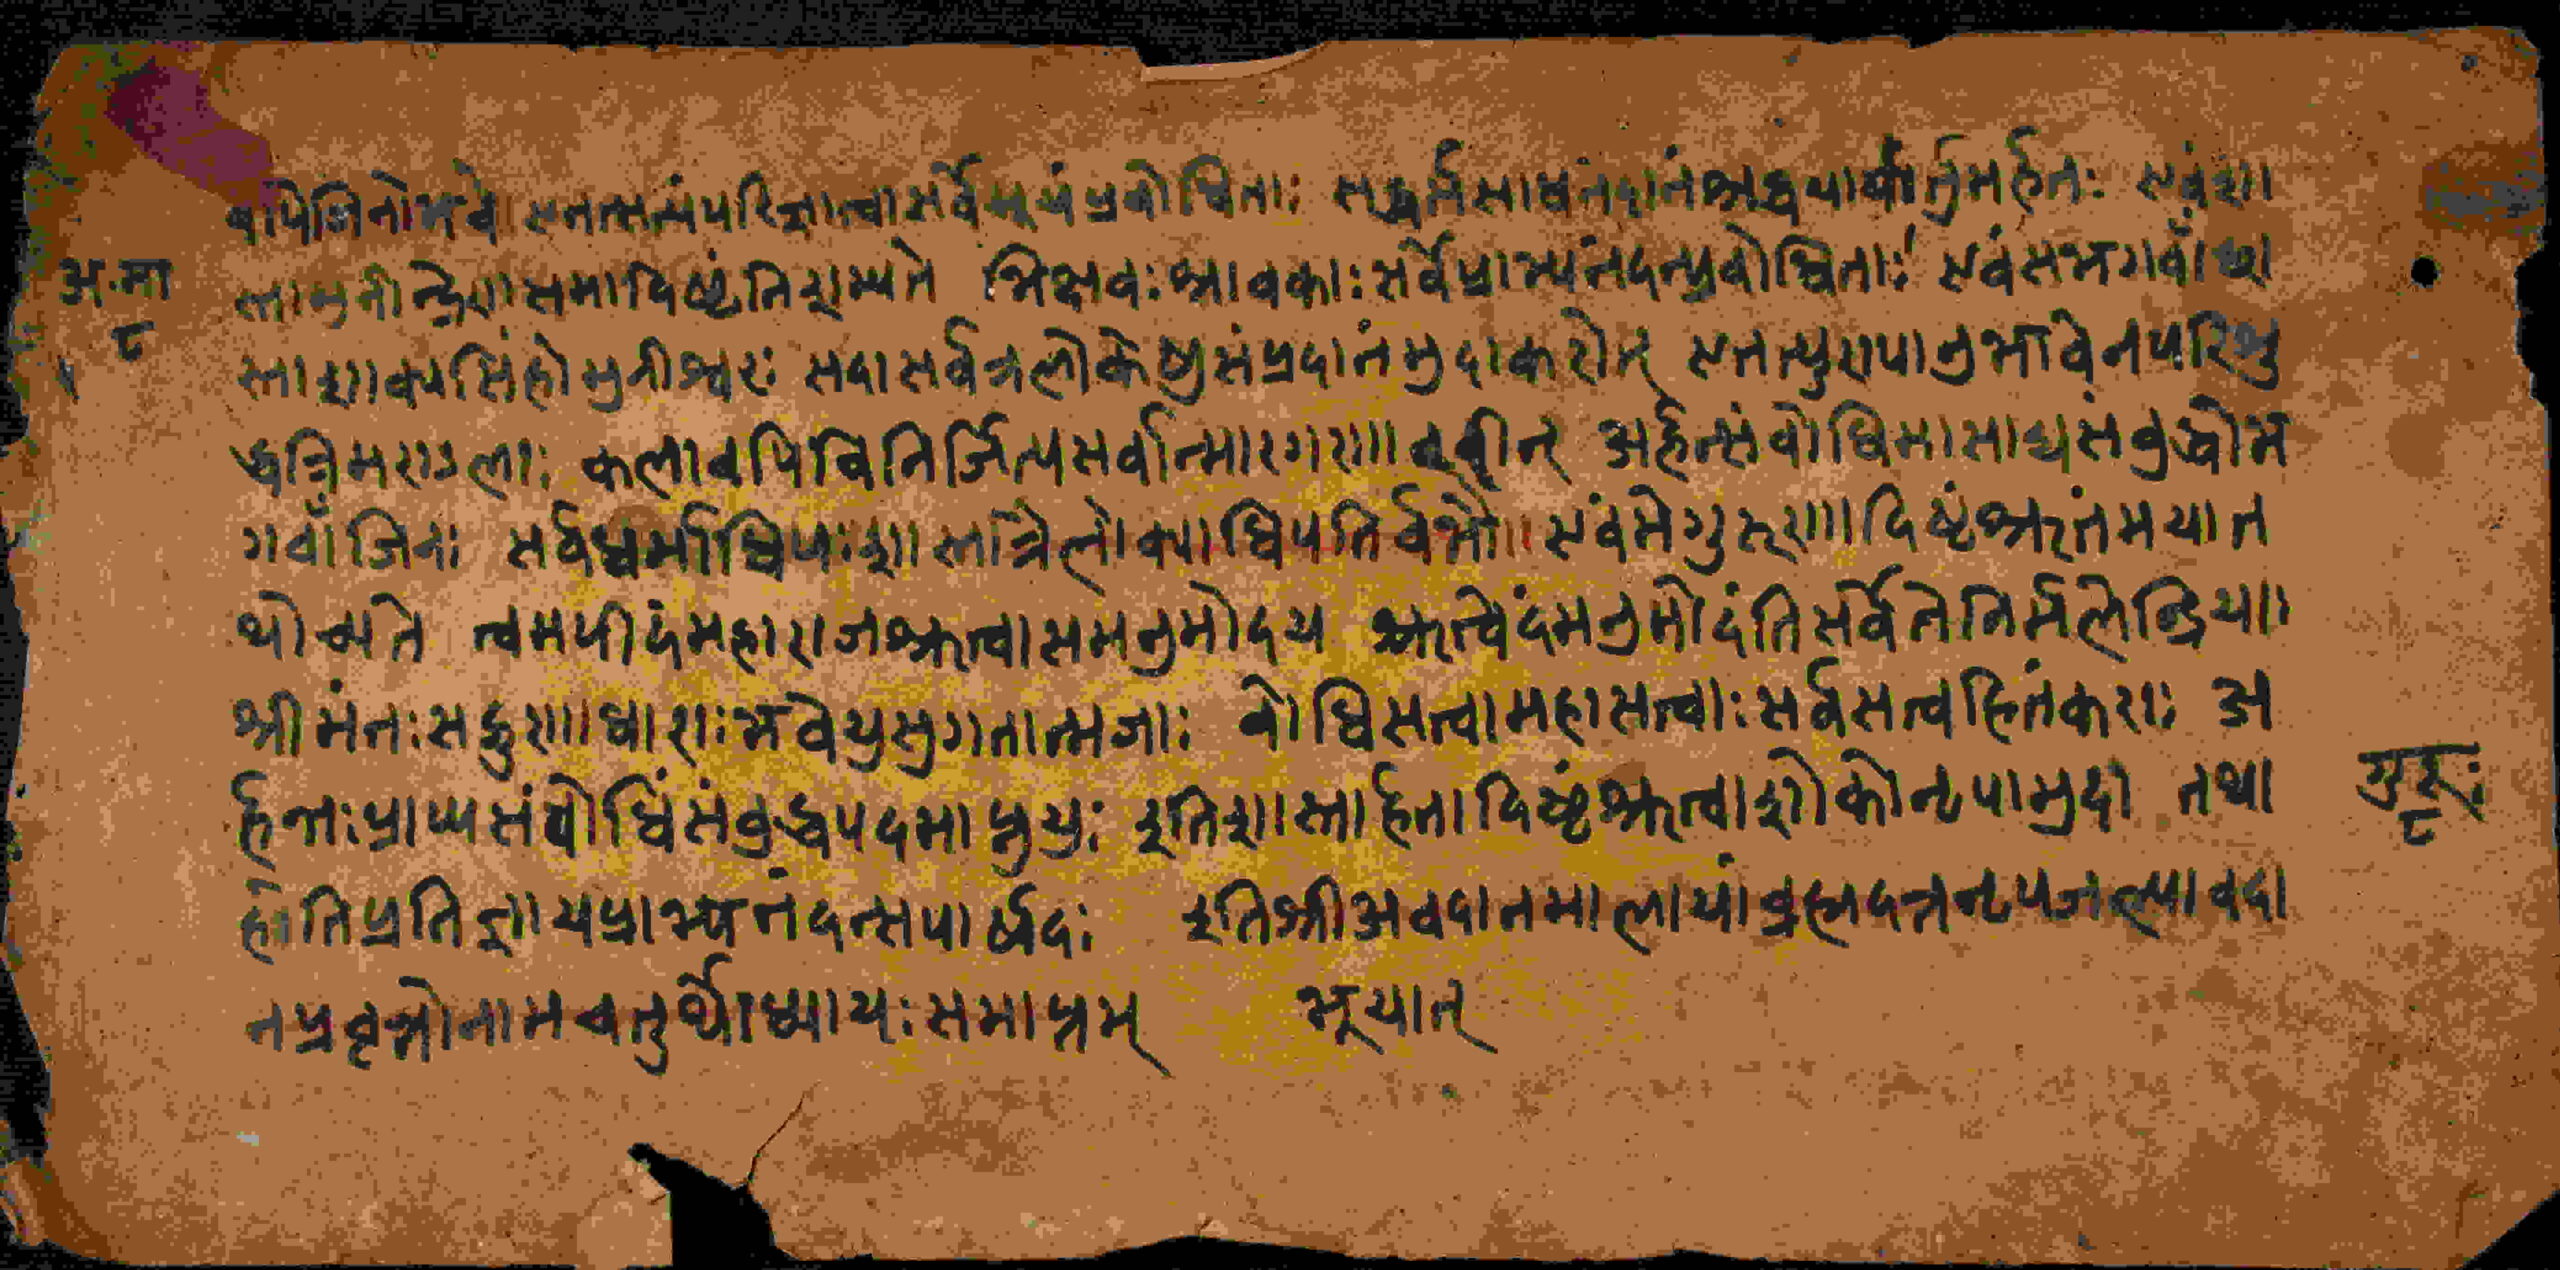 वापिजिनोभवे एतत्सत्यंपरिज्ञात्वासर्वेयूयंप्रबोधिताः सद्धर्मसाधनंदानंश्रद्धयाकर्तुमर्हतः एवंशा
अ.मा
८
स्तामुनीन्द्रेणसमादिष्टंनिशम्यते भिक्षवःश्रावकाःसर्वेप्राभ्यनंदन्प्रवोधिताः एवंसभगवाँछा
स्ताशाक्यसिंहोमुनीश्वरः सदासर्वत्रलोकेषुसंप्रदानंमुदाकरोत् एतत्पुण्यानुभावेनपरिशु
द्धत्रिमण्डलाः कलावपिविनिर्जित्यसर्वान्मारगणान्वशीन् अर्हन्संवोधिमासाद्यसंवुद्धोभ
गवाँजिनः सर्वधर्माधिपःशास्तात्रैलोक्याधिपतिर्वभौ एवंमेगुरुणादिष्टंश्रुतंमयात
थोच्यते त्वमपीदंमहाराजश्रुत्वासमनुमोदय श्रुत्वेदंमनुमोदंतिसर्वेतेनिर्मलेन्द्रिया
श्रीमंतःसद्गुणाधाराःभवेयुसुगतात्मजाः वोधिसत्वामहासत्वाःसर्वसत्वहितंकराः अ
र्हन्तःप्राप्यसंवोधिंसंवुद्धपदमाप्नुयुः इतिशास्तार्हतादिष्टंश्रुत्वाशोकोनृपामुदा तथा
गुरुः
८
हीतिप्रतिज्ञायप्राभ्यनंदत्सपार्षदः इतिश्रीअवदानमालायांव्रह्मदत्तनृपजल्पावदा
नप्रवृत्तोनामचतुर्थोध्यायःसमाप्तम् भूयात्